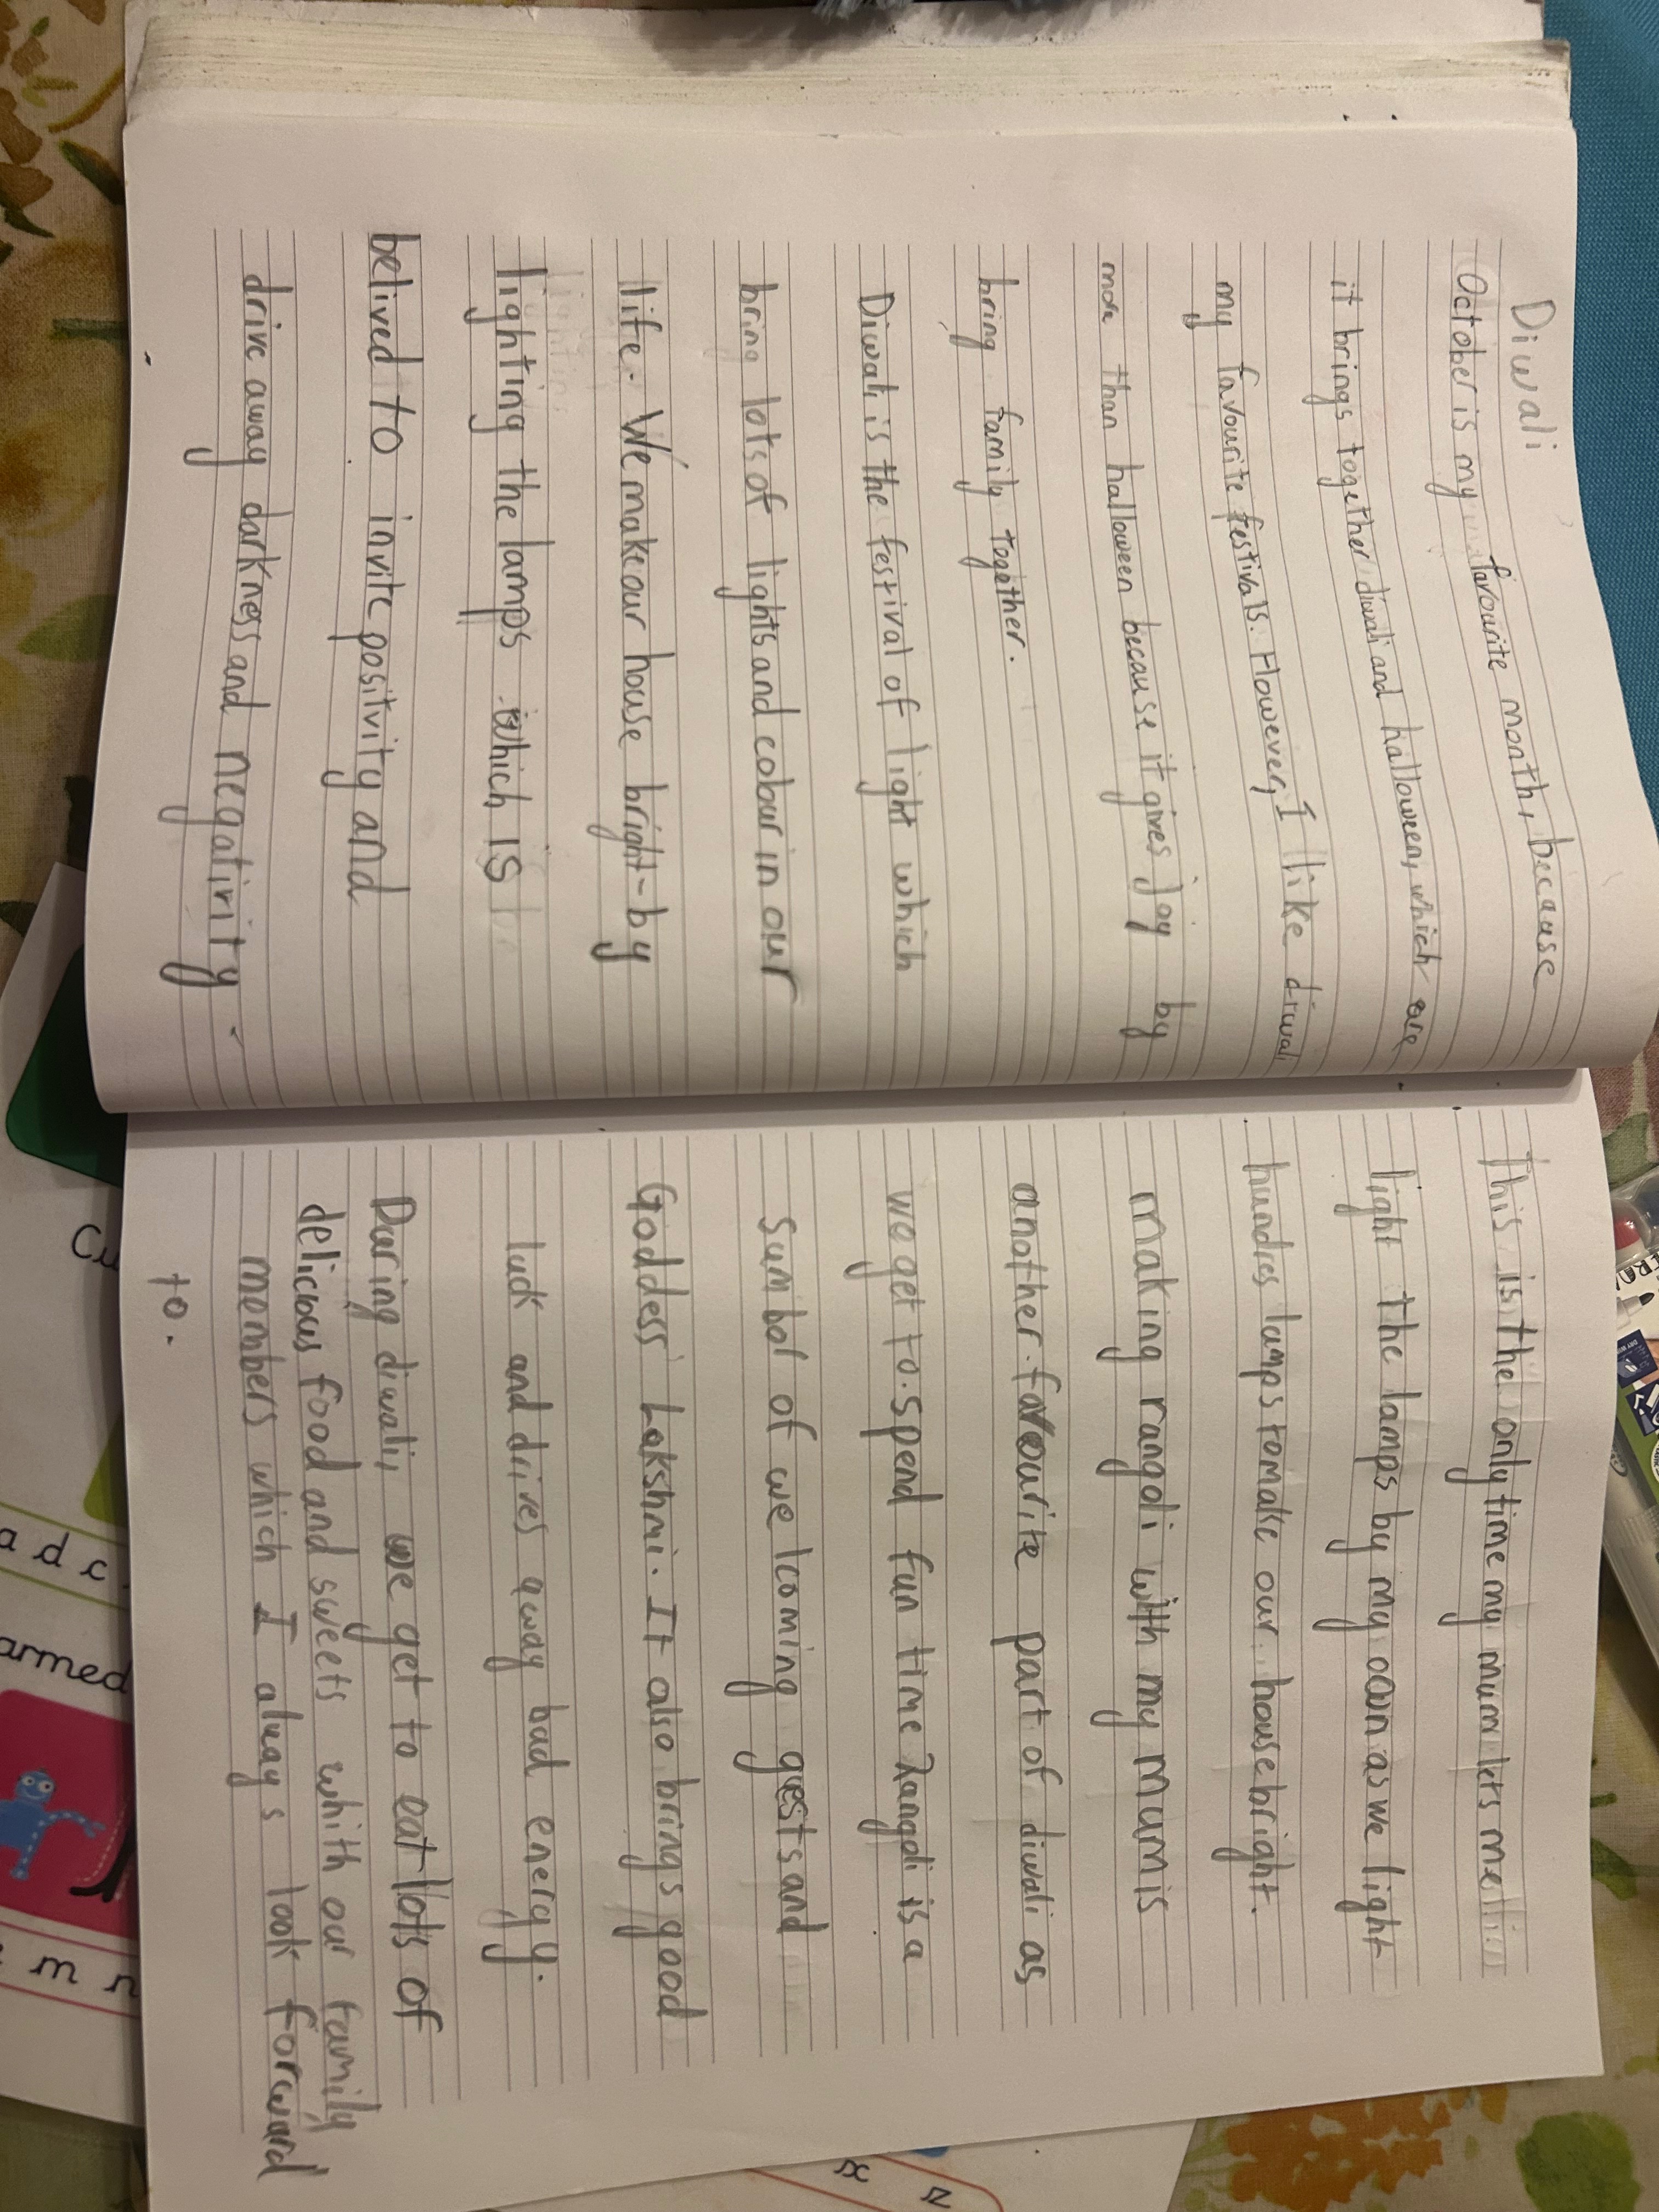 Diwali
October is my favourite month, because
it brings together diwali and halloween, which are
my favourite festivals. However, I like diwali
more than halloween because it gives joy by
bring family together.
Diwali is the festival of light which
bring lots of lights and colour in our
life. We make our house bright-by
lighting the lamps which is
belived to invite positvity and
drive away darkness and negativity.
This is the only time my mum lets me
light the lamps by my own as we light
hundres lamps to make our house bright.
making rangoli with my mum is
another favourite part of diwali as
we get to spend fun time Rangoli is a
Sumbol of welcoming gests and
Goddess Lakshmi. It also brings good
luck and drives away bad energy.
During diwali, we get to eat lots of
delicious food and sweets whith our family
members which I always look forward
to.
Cu
a d c
armed
m n
x z